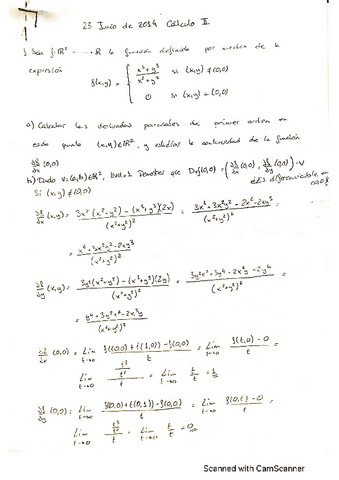 7
23 Junio de 2014 Cálculo II
1. Sea f: ℝ² → ℝ la función definida por medio de la
expresión
f(x,y) = { (x³+y³)/(x²+y²) si (x,y) ≠ (0,0)
0 si (x,y) = (0,0)
a) Calcular las derivadas parciales de primer orden en
cada punto (x,y) ∈ ℝ², y estudiar la continuidad de la función
∂f/∂x (0,0)
b) Dado v=(a,b) ∈ ℝ², ||v||=1 Demostrar que Dvf(0,0) = (∂f/∂x (0,0), ∂f/∂y (0,0)) · v
¿Es diferenciable en
Si (x,y) ≠ (0,0)
∂f/∂x (x,y) = (3x²(x²+y²) − (x³+y³)(2x))/(x²+y²)² = (3x⁴+3x²y²−2x⁴−2xy³)/(x²+y²)² =
= (x⁴+3x²y²−2xy³)/(x²+y²)²
∂f/∂y (x,y) = (3y²(x²+y²) − (x³+y³)(2y))/(x²+y²)² = (3y²x²+3y⁴−2x³y−2y⁴)/(x²+y²)² =
= (y⁴+3y²x²−2x³y)/(x²+y²)²
∂f/∂x (0,0) = Lim t→0 (f((0,0)+t(1,0))−f(0,0))/t = Lim t→0 (f(t,0)−0)/t =
= Lim t→0 (t³/t²)/t = Lim t→0 t/t = 1
∂f/∂y (0,0) = Lim t→0 (f(0,0)+t(0,1))−f(0,0))/t = Lim t→0 (f(0,t)−0)/t =
= Lim t→0 (t³/t²)/t = Lim t→0 t/t =
Scanned with CamScanner